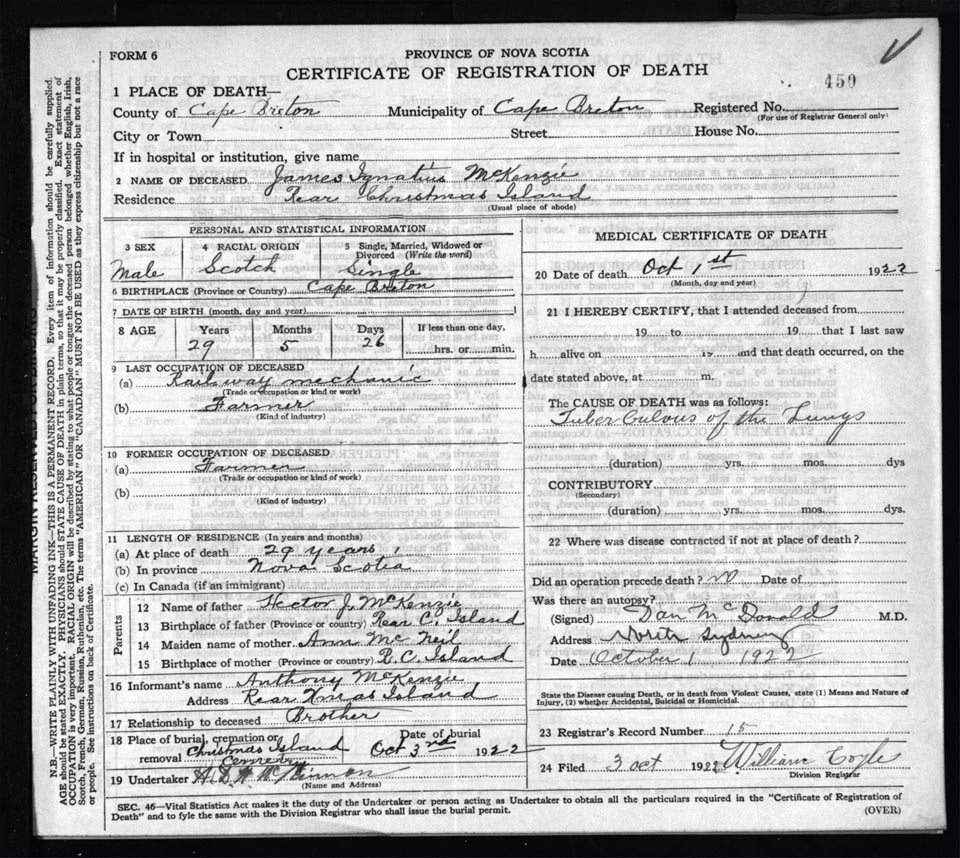 FORM 6
PROVINCE OF NOVA SCOTIA
CERTIFICATE OF REGISTRATION OF DEATH
450
1 PLACE OF DEATH—
County of Cape Breton Municipality of Cape Breton Registered No.
(For use of Registrar General only)
City or Town Street House No.
If in hospital or institution, give name
2 NAME OF DECEASED James Ignatius McKenzie
Residence Rear Christmas Island
(Usual place of abode)
PERSONAL AND STATISTICAL INFORMATION
3 SEX 4 RACIAL ORIGIN 5 Single, Married, Widowed or Divorced (Write the word)
Male Scotch Single
6 BIRTHPLACE (Province or Country) Cape Breton
7 DATE OF BIRTH (month, day and year)
8 AGE Years Months Days If less than one day,
29 5 26 hrs. or min.
9 LAST OCCUPATION OF DECEASED
(a) Railway mechanic
(Trade or occupation or kind of work)
(b) Farmer
(Kind of industry)
10 FORMER OCCUPATION OF DECEASED
(a) Farmer
(Trade or occupation or kind of work)
(b)
(Kind of industry)
11 LENGTH OF RESIDENCE (In years and months)
(a) At place of death 29 years
(b) In province Nova Scotia
(c) In Canada (if an immigrant)
Parents
12 Name of father Hector J. McKenzie
13 Birthplace of father (Province or country) Rear C. Island
14 Maiden name of mother Ann Mc Neil
15 Birthplace of mother (Province or country) R. C. Island
16 Informant's name Anthony McKenzie
Address Rear Xmas Island
17 Relationship to deceased Brother
18 Place of burial, cremation or removal Date of burial
Christmas Island Oct 3rd 1922
19 Undertaker
(Name and Address)
MEDICAL CERTIFICATE OF DEATH
20 Date of death Oct 1st 1922
(Month, day and year)
21 I HEREBY CERTIFY, that I attended deceased from
19 to 19 that I last saw
h alive on 19 and that death occurred, on the
date stated above, at m.
The CAUSE OF DEATH was as follows:
Tuberculous of the Lungs
(duration) yrs. mos. dys
CONTRIBUTORY
(Secondary)
(duration) yrs. mos. dys.
22 Where was disease contracted if not at place of death?
Did an operation precede death? no Date of
Was there an autopsy?
(Signed) Dan McDonald M.D.
Address North Sydney
Date October 1 1922
State the Disease causing Death, or in death from Violent Causes, state (1) Means and Nature of
Injury, (2) whether Accidental, Suicidal or Homicidal.
23 Registrar's Record Number 15
24 Filed 3 Oct 1922 William Coyle
Division Registrar
SEC. 46—Vital Statistics Act makes it the duty of the Undertaker or person acting as Undertaker to obtain all the particulars required in the "Certificate of Registration of
Death" and to fyle the same with the Division Registrar who shall issue the burial permit.
(OVER)
N.B.—WRITE PLAINLY WITH UNFADING INK—THIS IS A PERMANENT RECORD. Every item of information should be carefully supplied.
AGE should be stated EXACTLY. PHYSICIANS should STATE CAUSE OF DEATH in plain terms, so that it may be properly classified. Exact statement of
OCCUPATION is very important. RACIAL ORIGIN will be described by stating to what people or tongue the deceased person belonged whether English, Irish,
Scotch, French, German, Russian, Ruthenian, etc. The terms "AMERICAN" OR "CANADIAN" MUST NOT BE USED as they express citizenship but not a race
or people. See instructions on back of Certificate.